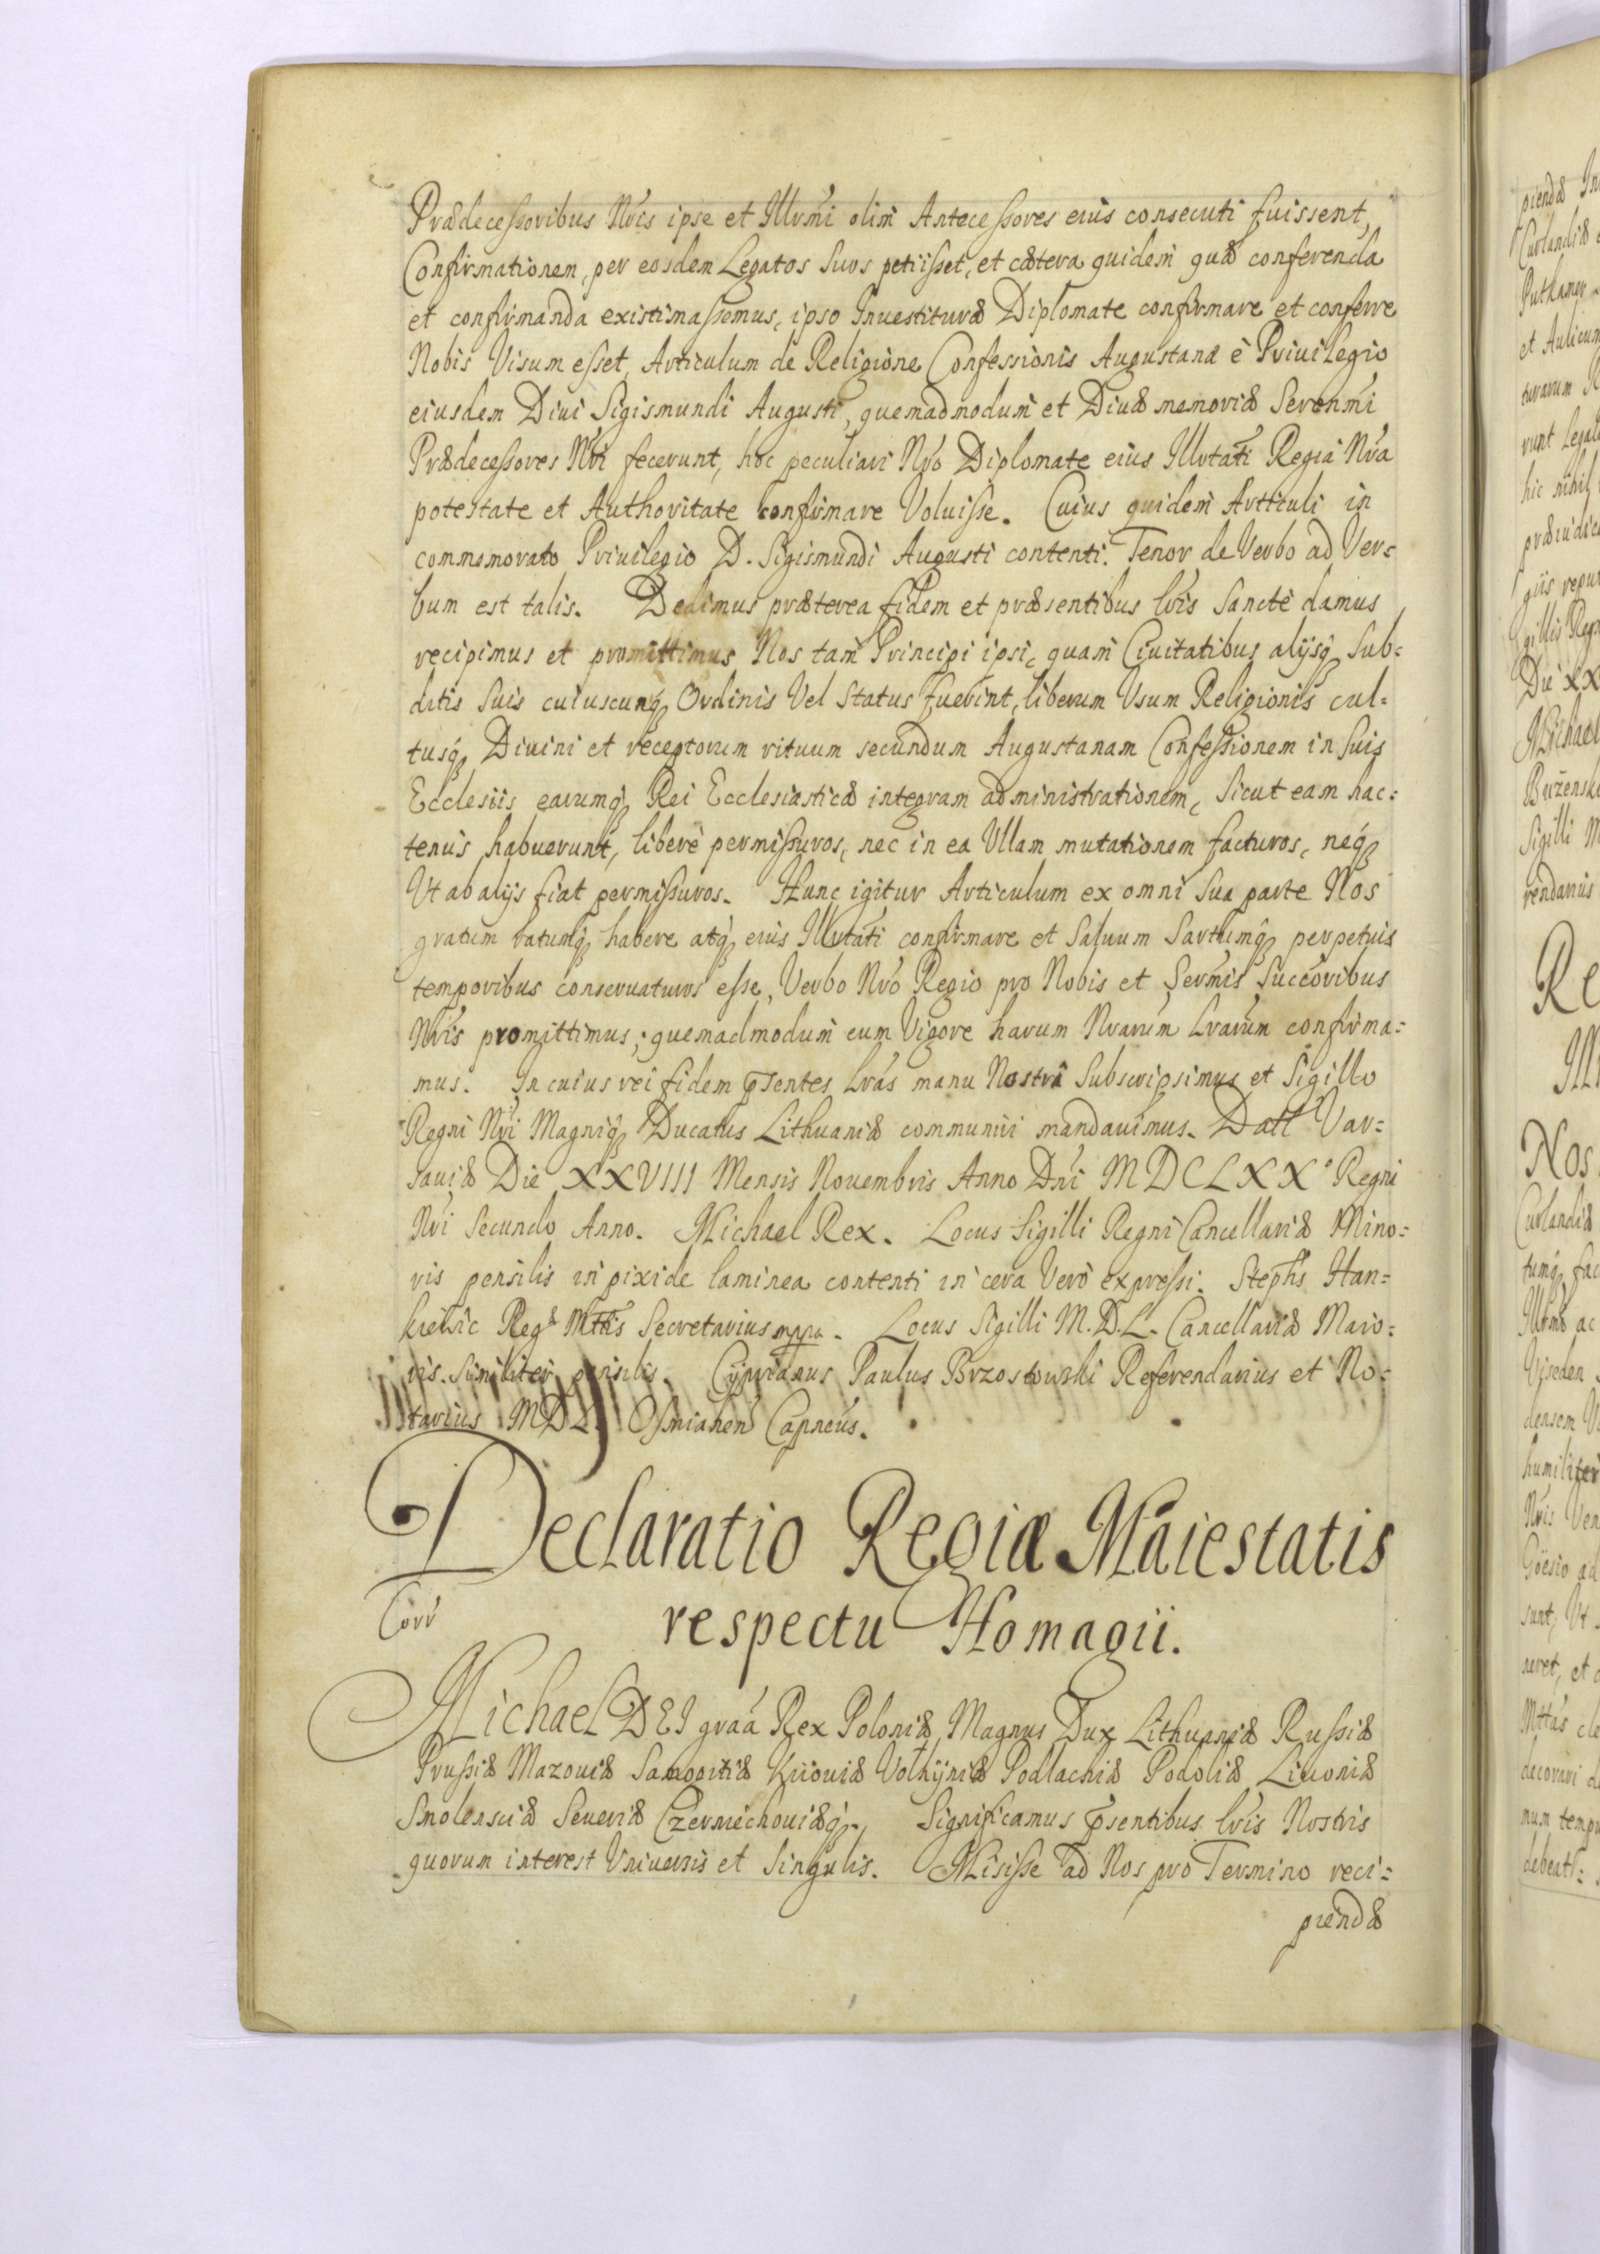 Prædecessoribus Nris ipse et Illrmi olim Antecessores eius consecuti fuissent,
Confirmationem, per eosdem Legatos suos petiisset, et cætera quidem quæ conferenda
et confirmanda existimassemus, ipso Inuestituræ Diplomate confirmare et conferre
Nobis Visum esset, Articulum de Religione Confessionis Augustanæ è Priuilegio
eiusdem Diui Sigismundi Augusti, quemadmodum et Diuæ memoriæ Serenmi
Prædecessores Nri fecerunt, hoc peculiari Nro Diplomate eius Illrtati Regia Nra
potestate et Authoritate confirmare Voluisse. Cuius quidem Articuli in
commemorato Priuilegio D. Sigismundi Augusti contenti. Tenor de Verbo ad Ver=
bum est talis. Dedimus præterea fidem et præsentibus lris Sanctè damus
recipimus et promittimus Nos tam Principi ipsi, quam Ciuitatibus alijsq Sub=
ditis suis cuiuscunq Ordinis Vel Status fuerint, liberum Usum Religionis cul=
tusq Diuini et receptorum rituum secundum Augustanam Confessionem in suis
Ecclesiis earumq Rei Ecclesiasticæ integram administrationem, Sicut eam hac=
tenus habuerunt, liberè permissuros, nec in ea Ullam mutationem facturos, neq
Ut ab alijs fiat permissuros. Hunc igitur Articulum ex omni sua parte Nos
gratum ratumq habere atq eius Illrtati confirmare et Saluum Sartumq perpetuis
temporibus conseruaturos esse, Verbo Nro Regio pro Nobis et Sermis Succoribus
Nris promittimus; quemadmodum eum Vigore harum Nrarum Lrarum confirma=
mus. In cuius rei fidem pșentes lras manu Nostra Subscripsimus et Sigillo
Regni Nri Magniq Ducatus Lithuaniæ communiri mandauimus. Datt Var=
sauiæ Die XXVIII Mensis Nouembris Anno Dni MDCLXXº Regni
Nri Secundo Anno. Michael Rex. Locus Sigilli Regni Cancellariæ Mino=
ris pensilis in pixide laminea contenti in cera Verò expressi. Stephs Han=
kiewic Regæ Mttis Secretarius mppa. Locus Sigilli M.D.L. Cancellariæ Maio=
ris. Similiter pensilis. Cyprianus Paulus Brzostowski Referendarius et No=
tarius MDL. Osmianen Capneus.
Declaratio Regiæ Maiestatis
Corr
respectu Homagii.
Michael DEI graa Rex Poloniæ, Magnus Dux Lithuaniæ Russiæ
Prussiæ Mazouiæ Samogitiæ Kiiouiæ Volhijniæ Podlachiæ Podoliæ Liuoniæ
Smolensciæ Seueriæ Czerniechouiæq. Significamus pșentibus lris Nostris
quorum interest Uniuersis et Singulis. Misisse ad Nos pro Termino reci=
piendæ